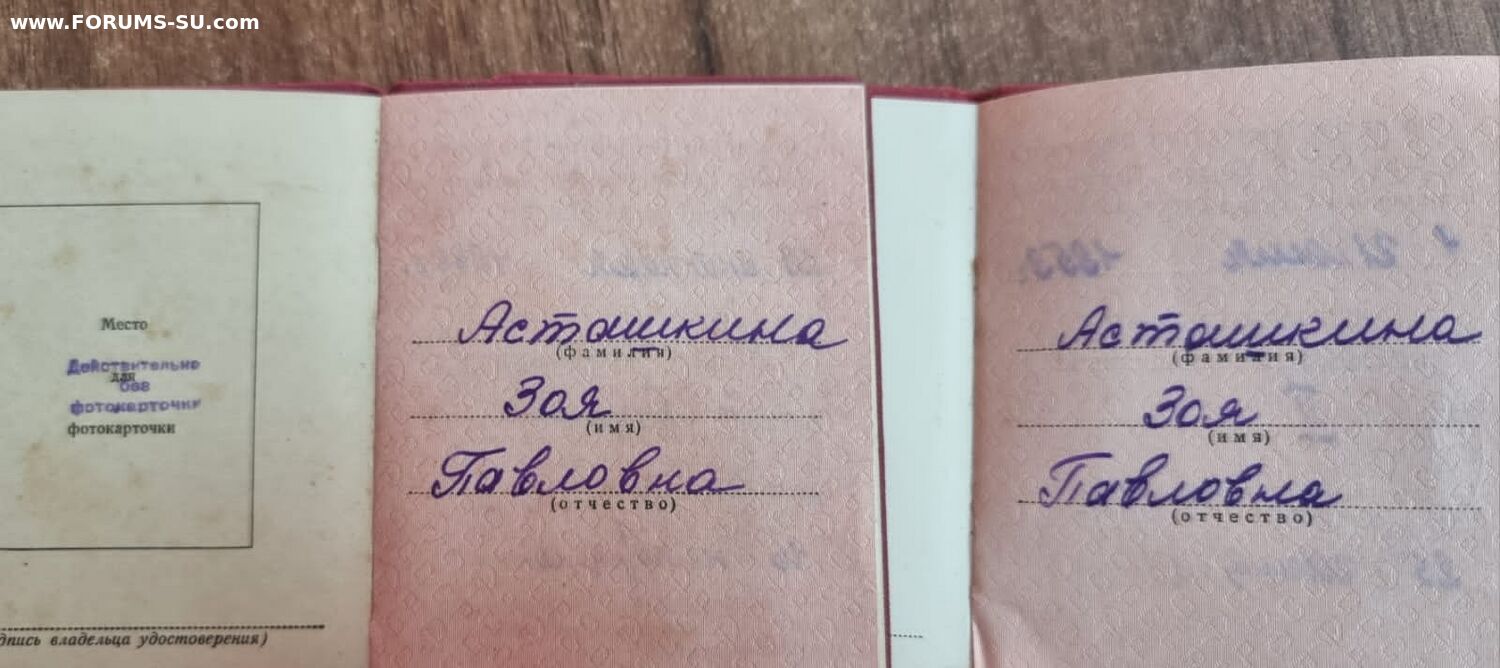 www.FORUMS-SU.com
Место
Действительно
для
без
фотокарточки
фотокарточки
дпись владельца удостоверения)
Асташкина
(фамилия)
Зоя
(имя)
Павловна
(отчество)
Асташкина
(фамилия)
Зоя
(имя)
Павловна
(отчество)